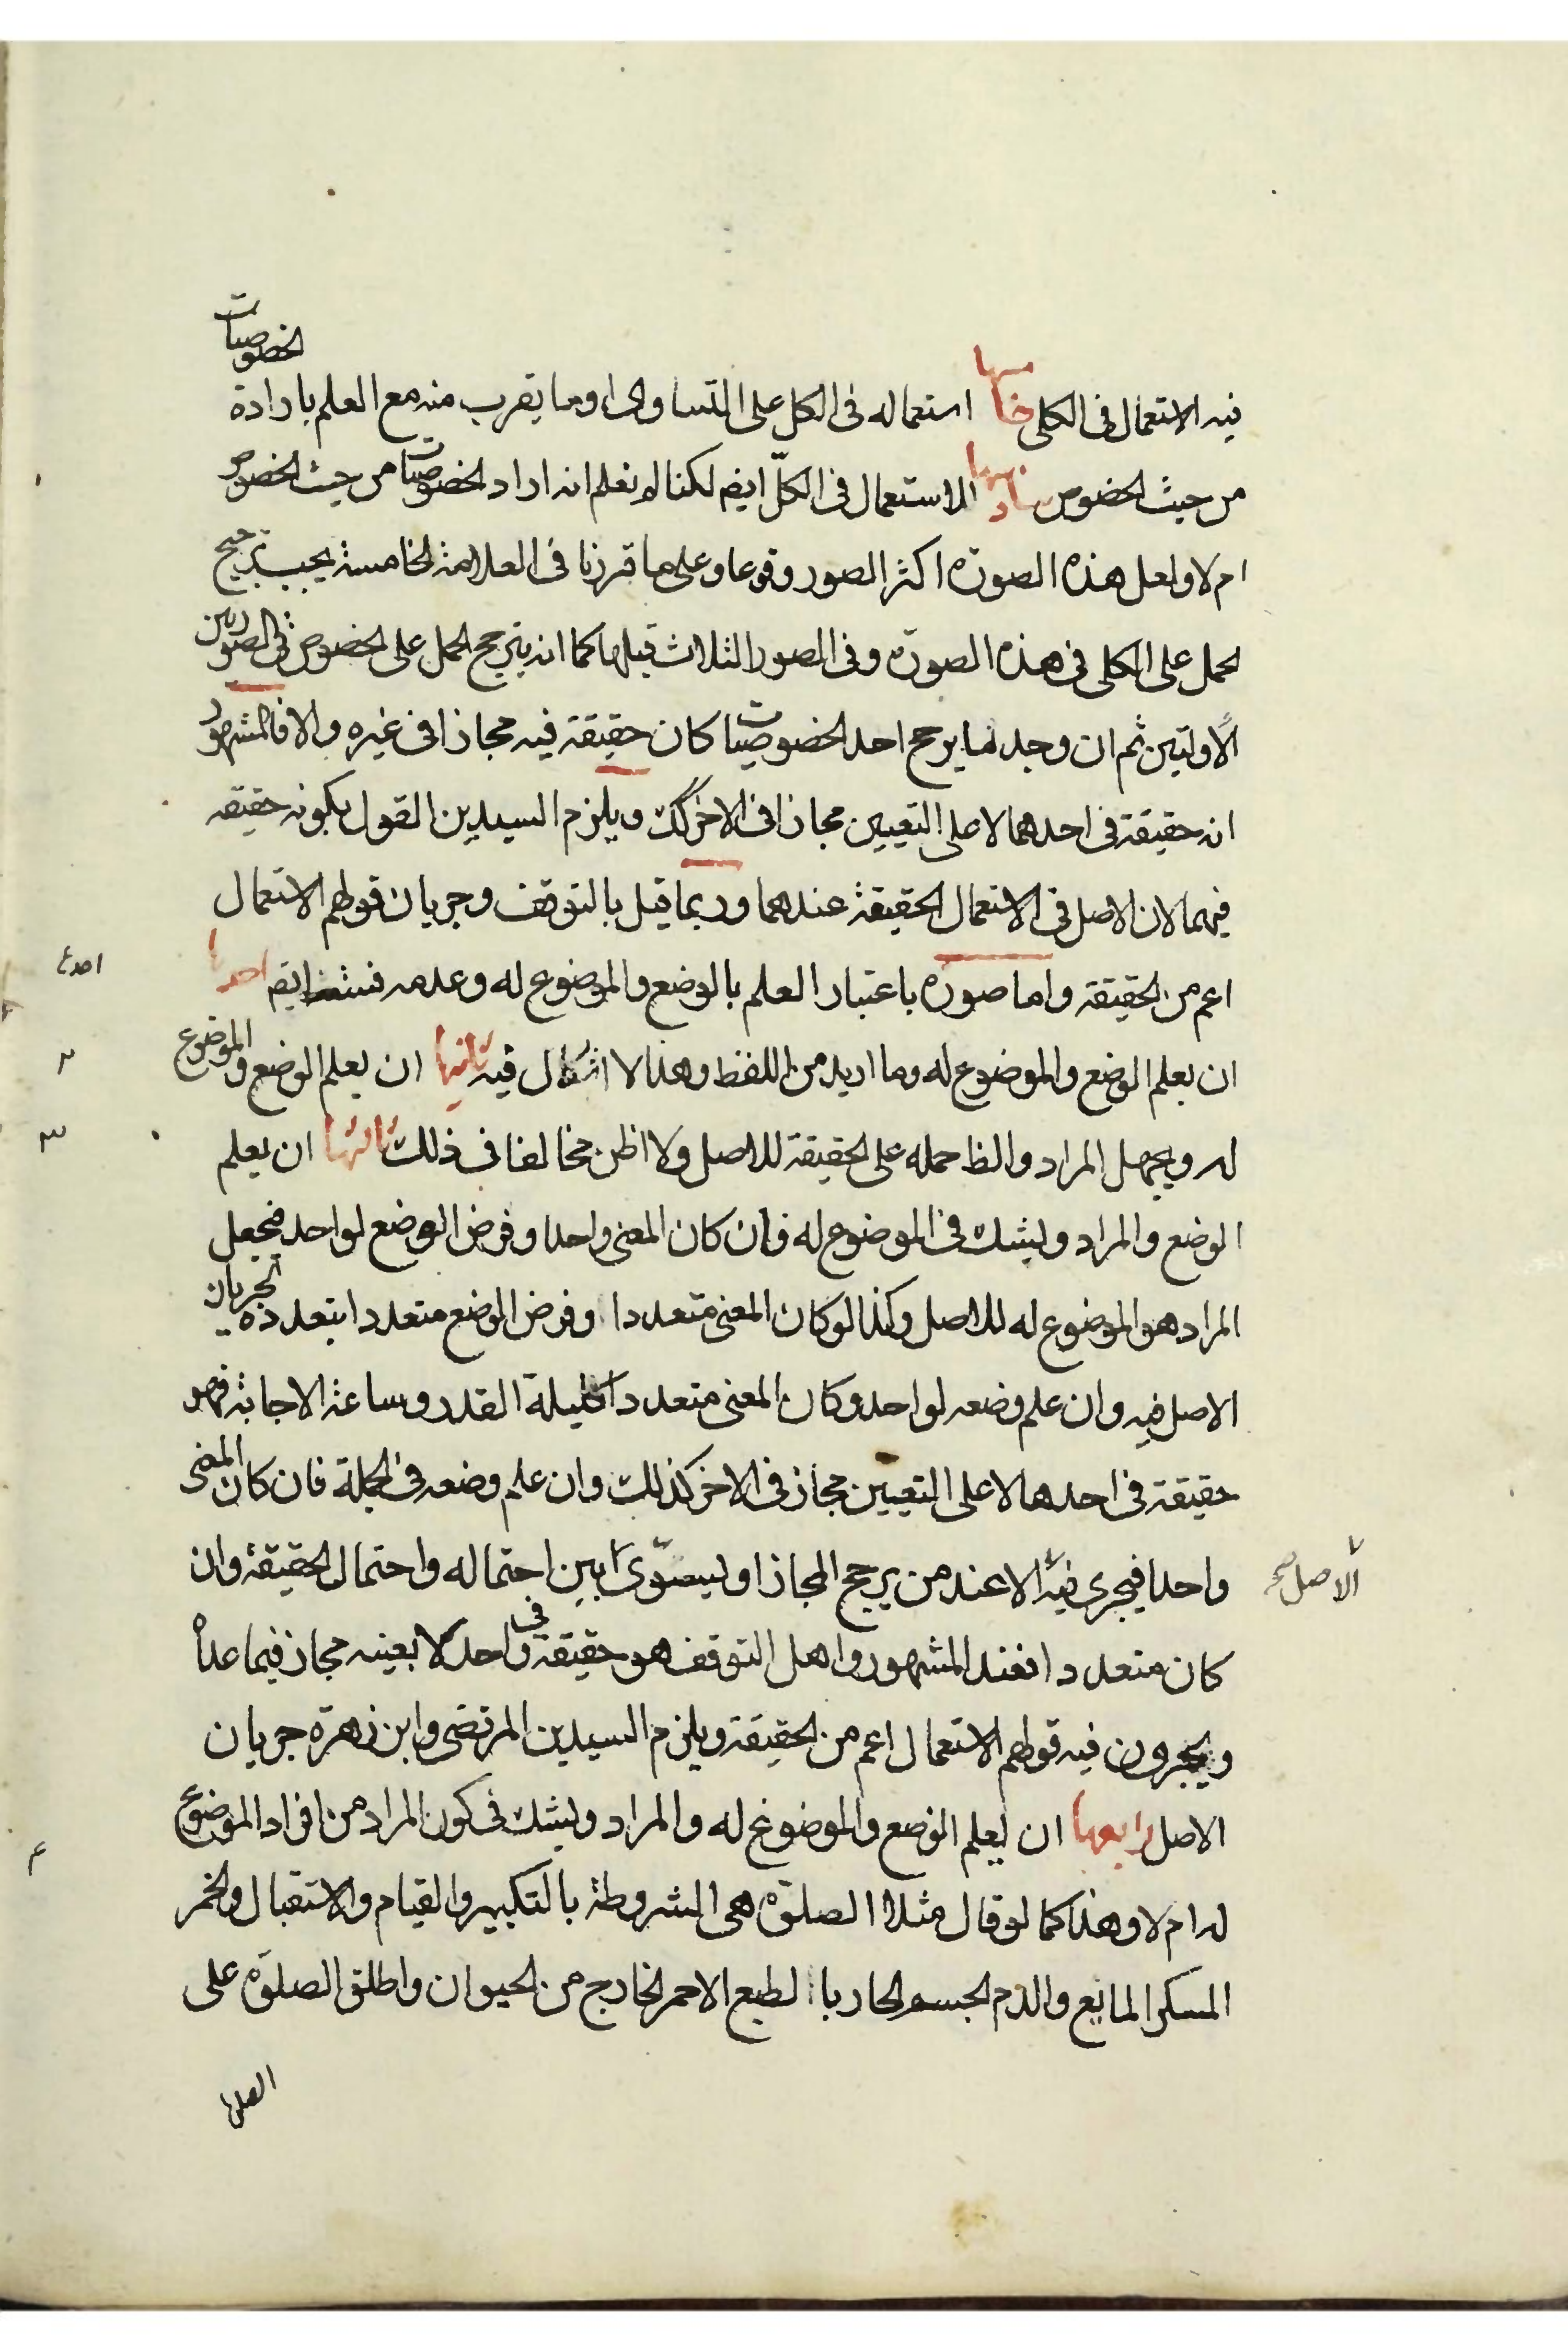 فيه الاستعمال فى الكلى خامسها استعماله فى الكل على التساوى او ما يقرب منه مع العلم بارادة الخصوصيات
من حيث الخصوص سادسها الاستعمال فى الكلّ ايضا لكنا لا نعلم انه اراد الخصوصيات من حيث الخصوص
ام لا ولعل هذه الصورة اكثر الصور وقوعا وعلى ما قررنا فى العلامة الخامسة يجب ترجيح
الحمل على الكلى فى هذه الصورة وفى الصور الثلاث قبلها كما انه يترجح الحمل على الخصوص فى الصورتين
الاولتين ثم ان وجد ما يرجح احد الخصوصيات كان حقيقة فيه مجازا فى غيره والا فالمشهور
انه حقيقة فى احدهما لا على التعيين مجازا فى الاخر كك ويلزم السيدين القول بكونه حقيقه
فيهما لان الاصل فى الاستعمال الحقيقة عندهما وربما قيل بالتوقف وجريان قولهم الاستعمال
اعم من الحقيقة واما صوره باعتبار العلم بالوضع والموضوع له وعدمه ايضا احدها
ان يعلم الوضع والموضوع له وما اريد من اللفظ وهذا لا اشكال فيه ثانيها ان يعلم الوضع والموضوع
٢
له ويجهل المراد والظ حمله على الحقيقة للاصل ولا اظن مخالفا فى ذلك ثالثها ان يعلم
٣
الوضع والمراد ويشك فى الموضوع له فان كان المعنى واحدا وفرض الوضع لواحد فيجعل
المراد هو الموضوع له للاصل وكذا لو كان المعنى متعددا وفرض الوضع متعددا بتعدده لجريان
الاصل فيه وان علم وضعه لواحد وكان المعنى متعددا كليلة القدر وساعة الاجابة فهو
حقيقة فى احدهما لا على التعيين مجاز فى الاخر كذلك وان علم وضعه فى الجملة فان كان المعنى
واحدا فيجرى فيه الا عند من يرجح المجاز او ليسوى بين احتماله واحتمال الحقيقة وان
الاصل صح
كان متعددا فعند المشهور واهل التوقف هو حقيقة فى واحد لا بعينه مجاز فيما عداه
ويجرون فيه قولهم الاستعمال اعم من الحقيقة ويلزم السيدين المرتضى وابن زهرة جريان
الاصل رابعها ان يعلم الوضع والموضوع له والمراد ويشك فى كون المراد من افراد الموضوع
٤
له ام لا وهذا كما لو قال مثلا الصلوة هى المشروطة بالتكبير والقيام والاستقبال والخمر
المسكر المايع والدم الجسم الحار بالطبع الاحمر الخارج من الحيوان واطلق الصلوة على